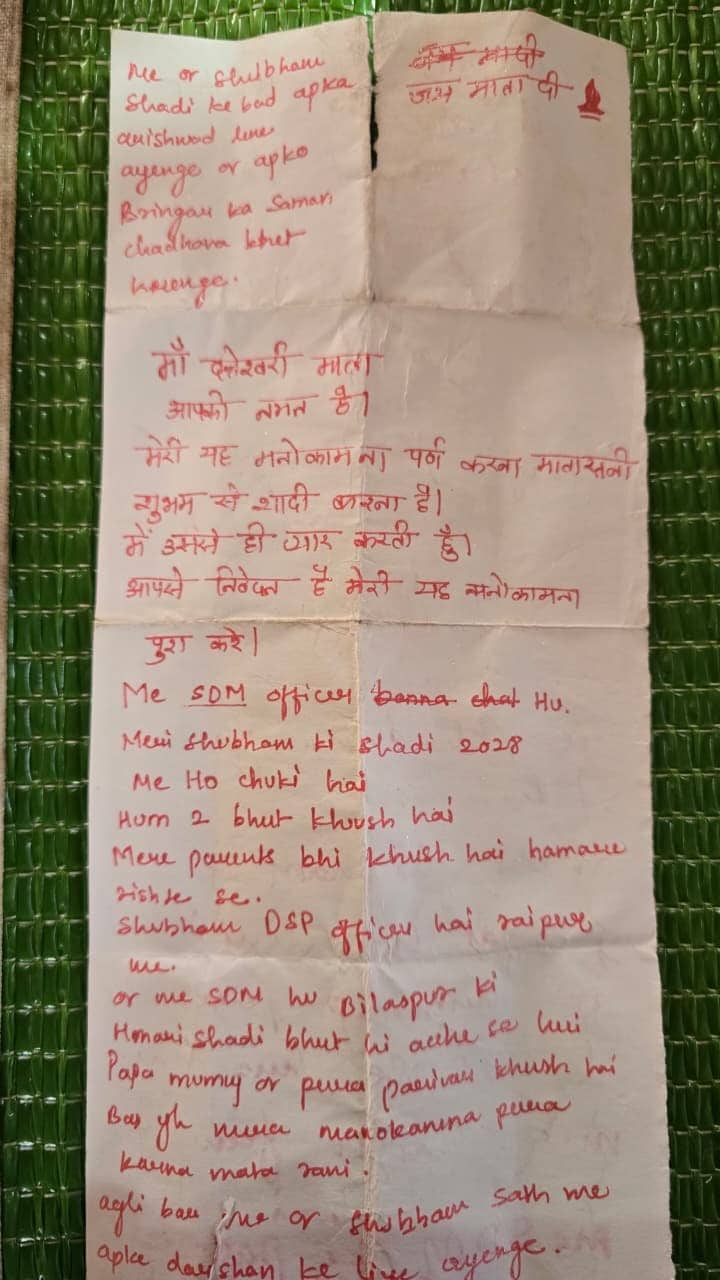 जय माता दी
जय माता दी
Me or Shubham
Shadi ke bad apka
aushirwad lene
ayenge or apko
Bringau ka Saman
chadhava bhet
karenge.
माँ दन्तेश्वरी माता
आपको नमत है।
मेरी यह मनोकामना पर्ण करना मातारानी
शुभम से शादी करना है।
में उससे ही प्यार करती हूँ।
आपसे निवेदन है मेरी यह मनोकामना
पुरा करे।
Me SDM officer banna chat Hu.
Meri Shubham ki shadi 2028
Me Ho chuki hai
Hum 2 bhut khoush hai
Mere parents bhi khush hai hamare
rishte se.
Shubham DSP officer hai raipur
me.
or me SDM hu Bilaspur ki
Hamari shadi bhut hi acche se hui
Papa mumy or pura parivar khush hai
Bas yh mera manokamna pura
karna mata rani.
agli bar me or Shubham sath me
apke darshan ke liye ayenge.